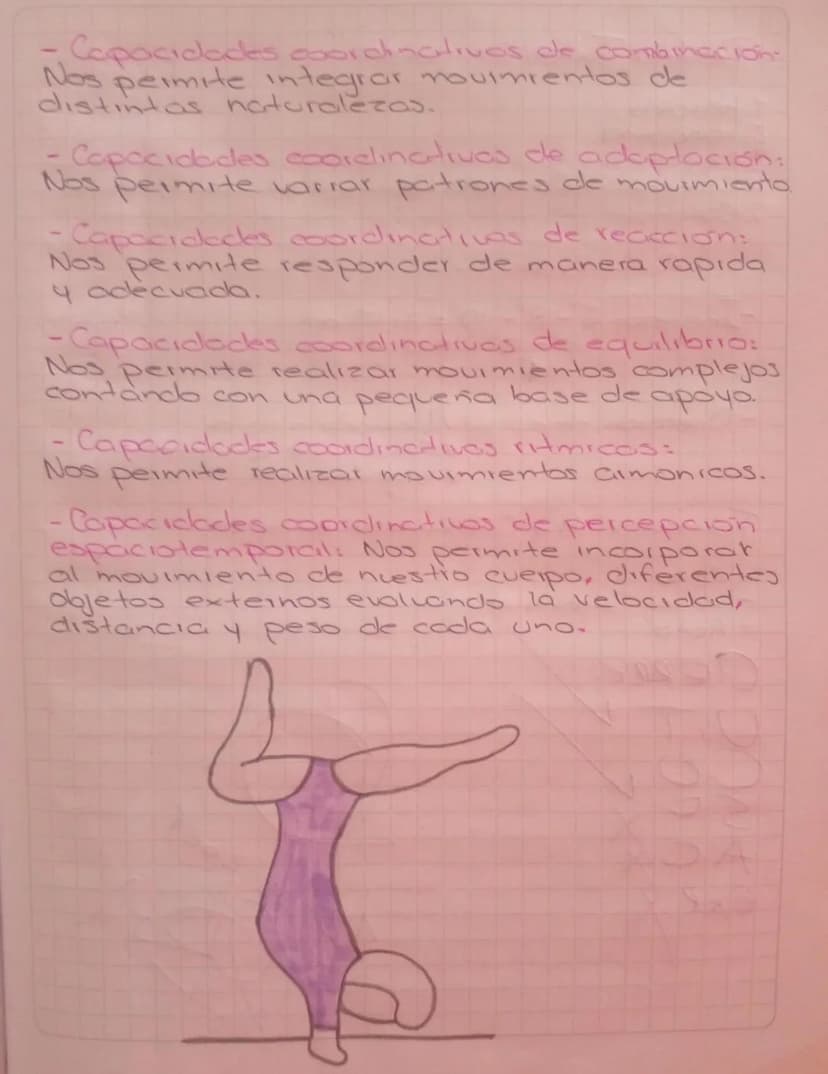 - Capacidades coordinativas de combinación:
Nos permite integrar movimientos de
distintas naturalezas.
- Capacidades coordinativas de adaptación:
Nos permite variar patrones de movimiento
- Capacidades coordinativas de reacción:
Nos permite responder de manera rapida
y adecuada.
- Capacidades coordinativas de equilibrio:
Nos permite realizar movimientos complejos
contando con una pequeña base de apoyo.
- Capacidades coordinativas ritmicas:
Nos permite realizar movimientos armonicos.
- Capacidades coordinativas de percepción
espaciotemporal: Nos permite incorporar
al movimiento de nuestro cuerpo, diferentes
objetos externos evaluando la velocidad,
distancia y peso de cada uno.